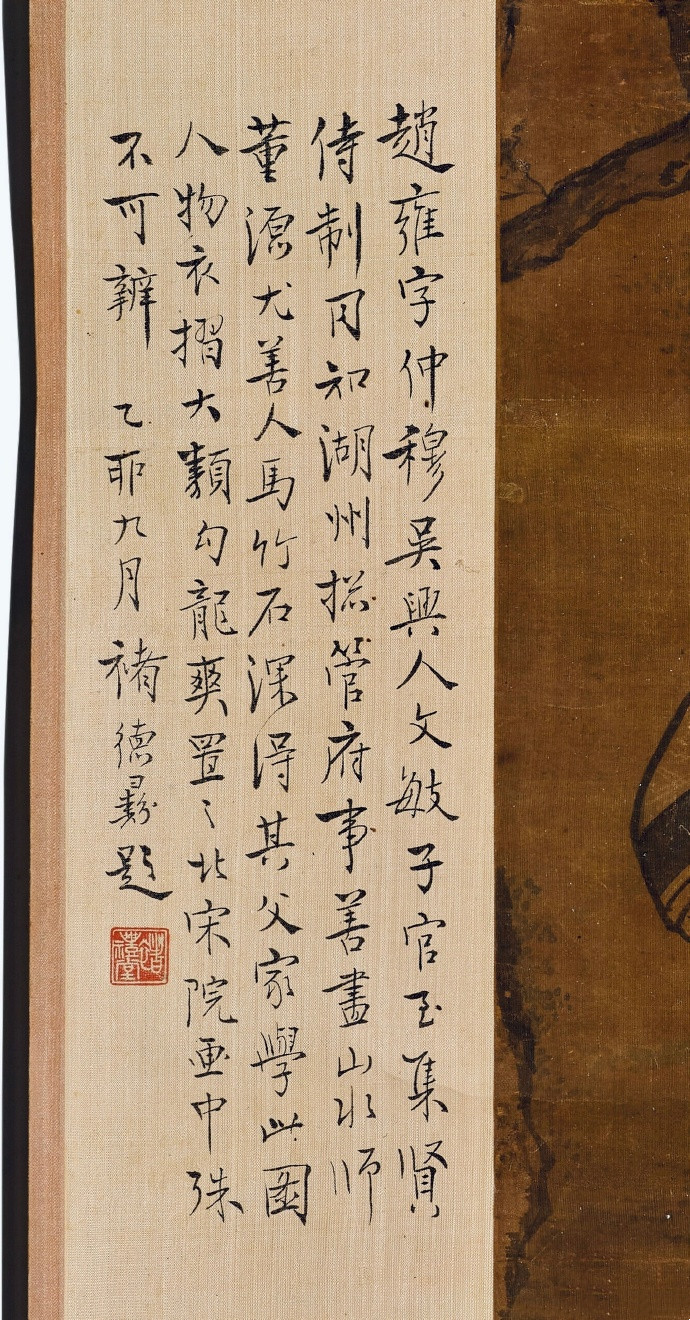 趙雍字仲穆吳興人文敏子官至集賢
侍制同知湖州揔管府事善畫山水師
董源尤善人馬竹石深得其父家學此圖
人物衣摺大類勾龍爽置之北宋院画中殊
不可辨 乙丣九月 褚德彝題
褚禮堂